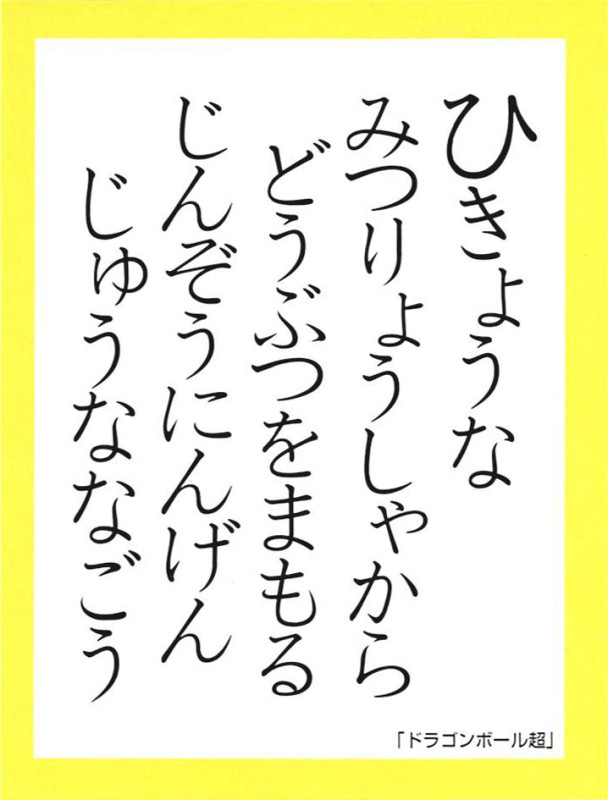 ひきょうな
みつりょうしゃから
どうぶつをまもる
じんぞうにんげん
じゅうななごう
「ドラゴンボール超」